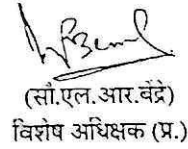 (सौ.एल.आर.वेंद्रे)
विशेष अधिक्षक (प्र.)